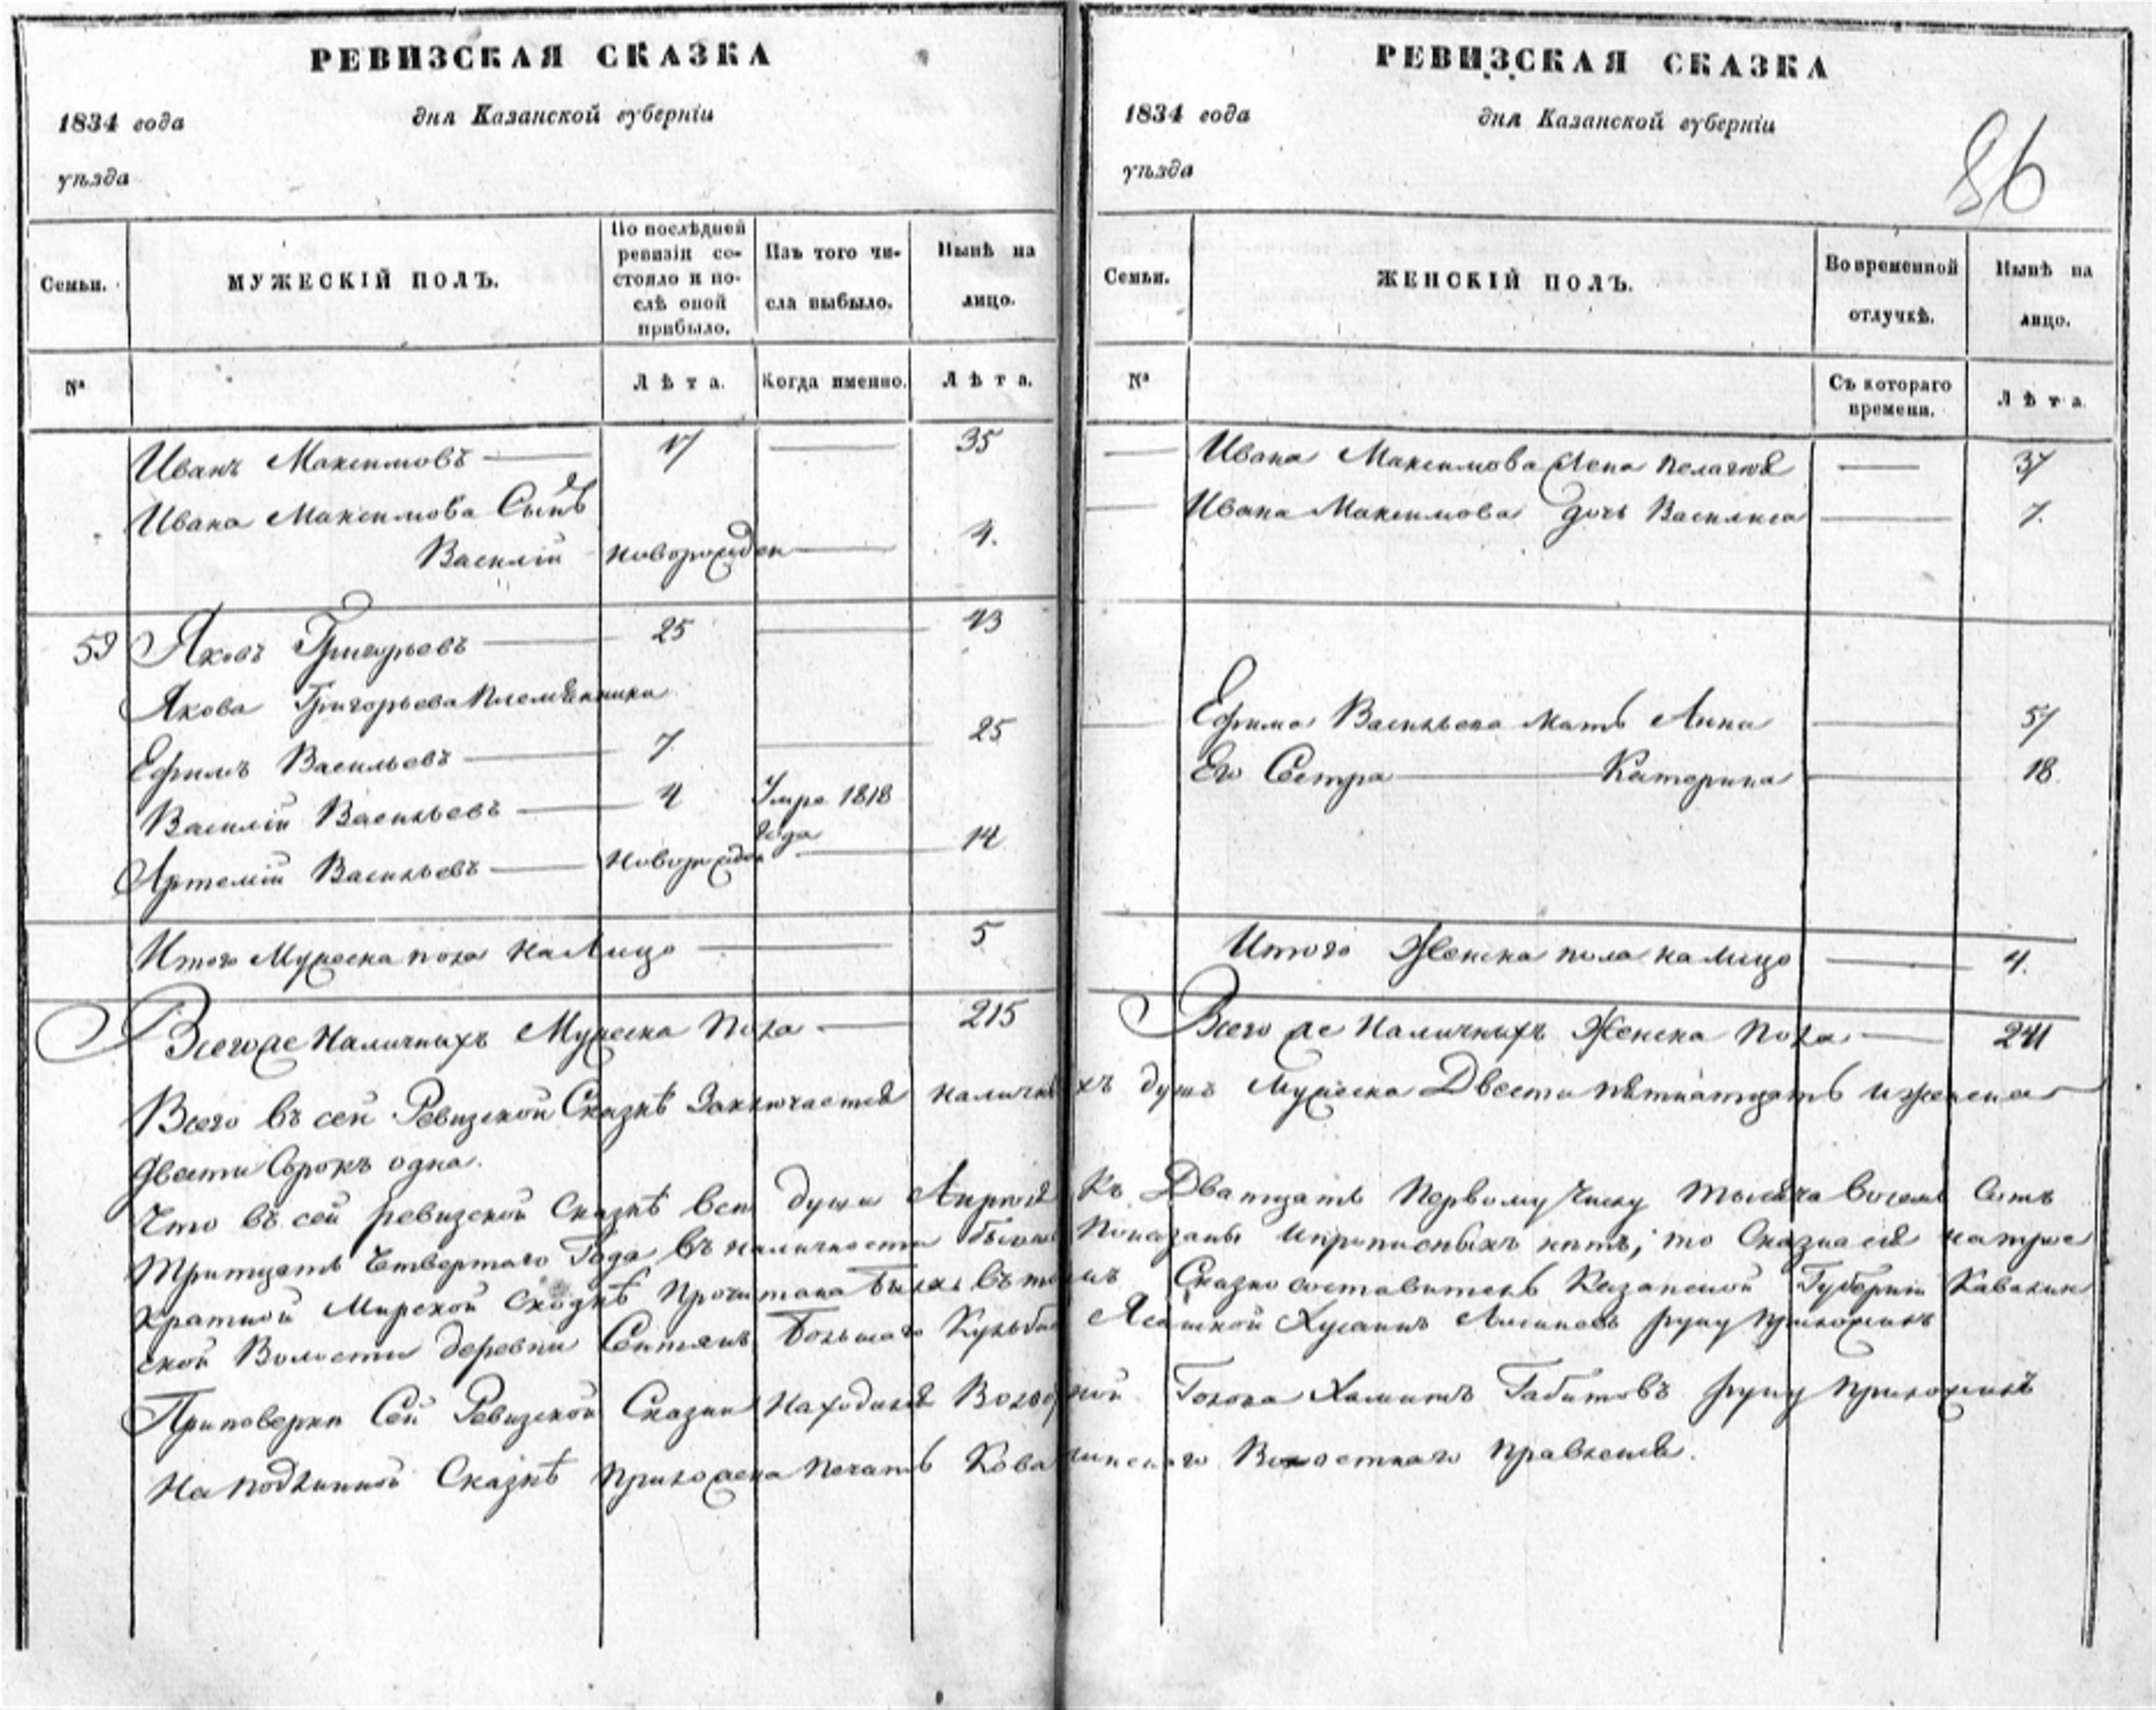 РЕВИЗСКАЯ СКАЗКА
1834 года дня Казанской губерніи
уѣзда
Семьи.
МУЖЕСКІЙ ПОЛЪ.
По послѣдней ревизіи состояло и послѣ оной прибыло.
Изъ того числа выбыло.
Нынѣ на лицо.
№
Лѣта.
Когда именно.
Лѣта.
Иванъ Максимовъ 17 35
Ивана Максимова Сынъ
Василій новорожден 4.
59 Яковъ Григорьевъ 25 43
Якова Григорьева племянники
Ефимъ Васильевъ 7 25
Василій Васильевъ 4 Умре 1818 года
Артемій Васильевъ новорожден 14
Итого Мужеска пола на лицо 5
Всего же Наличныхъ Мужеска Пола 215
РЕВИЗСКАЯ СКАЗКА
1834 года дня Казанской губерніи
уѣзда
86
Семьи.
ЖЕНСКІЙ ПОЛЪ.
Во временной отлучкѣ.
Нынѣ на лицо.
№
Съ котораго времени.
Лѣта.
Ивана Максимова Жена Пелагия 37
Ивана Максимова дочь Василиса 7.
Ефима Васильева мать Анна 57
Его Сестра Катерина 18.
Итого Женска пола на лицо 4.
Всего же Наличныхъ Женска Пола 241
Всего въ сей Ревизской Сказкѣ Заключается наличныхъ душъ Мужеска Двести пятнатцать и женска
двести Сорокъ одна.
Что въ сей ревизской Сказкѣ все души Апреля къ Дватцать Первому Числу тысяча восемь Сотъ
тритцать Четвертаго Года въ наличности Показаны и прописныхъ нетъ; то Сказка сия на трое
кратной Мирской Прочитана Была въ томъ Сказкосоставитель Казанской Губернии Ковалин
ской Волости деревни Большаго руку приложилъ
При поверки Сей Ревизской Сказки Находился Волосной Голова Хамитъ Габитовъ руку приложилъ
На подлинной Сказкѣ приложена печать Ковалинскаго Волостнаго правления.